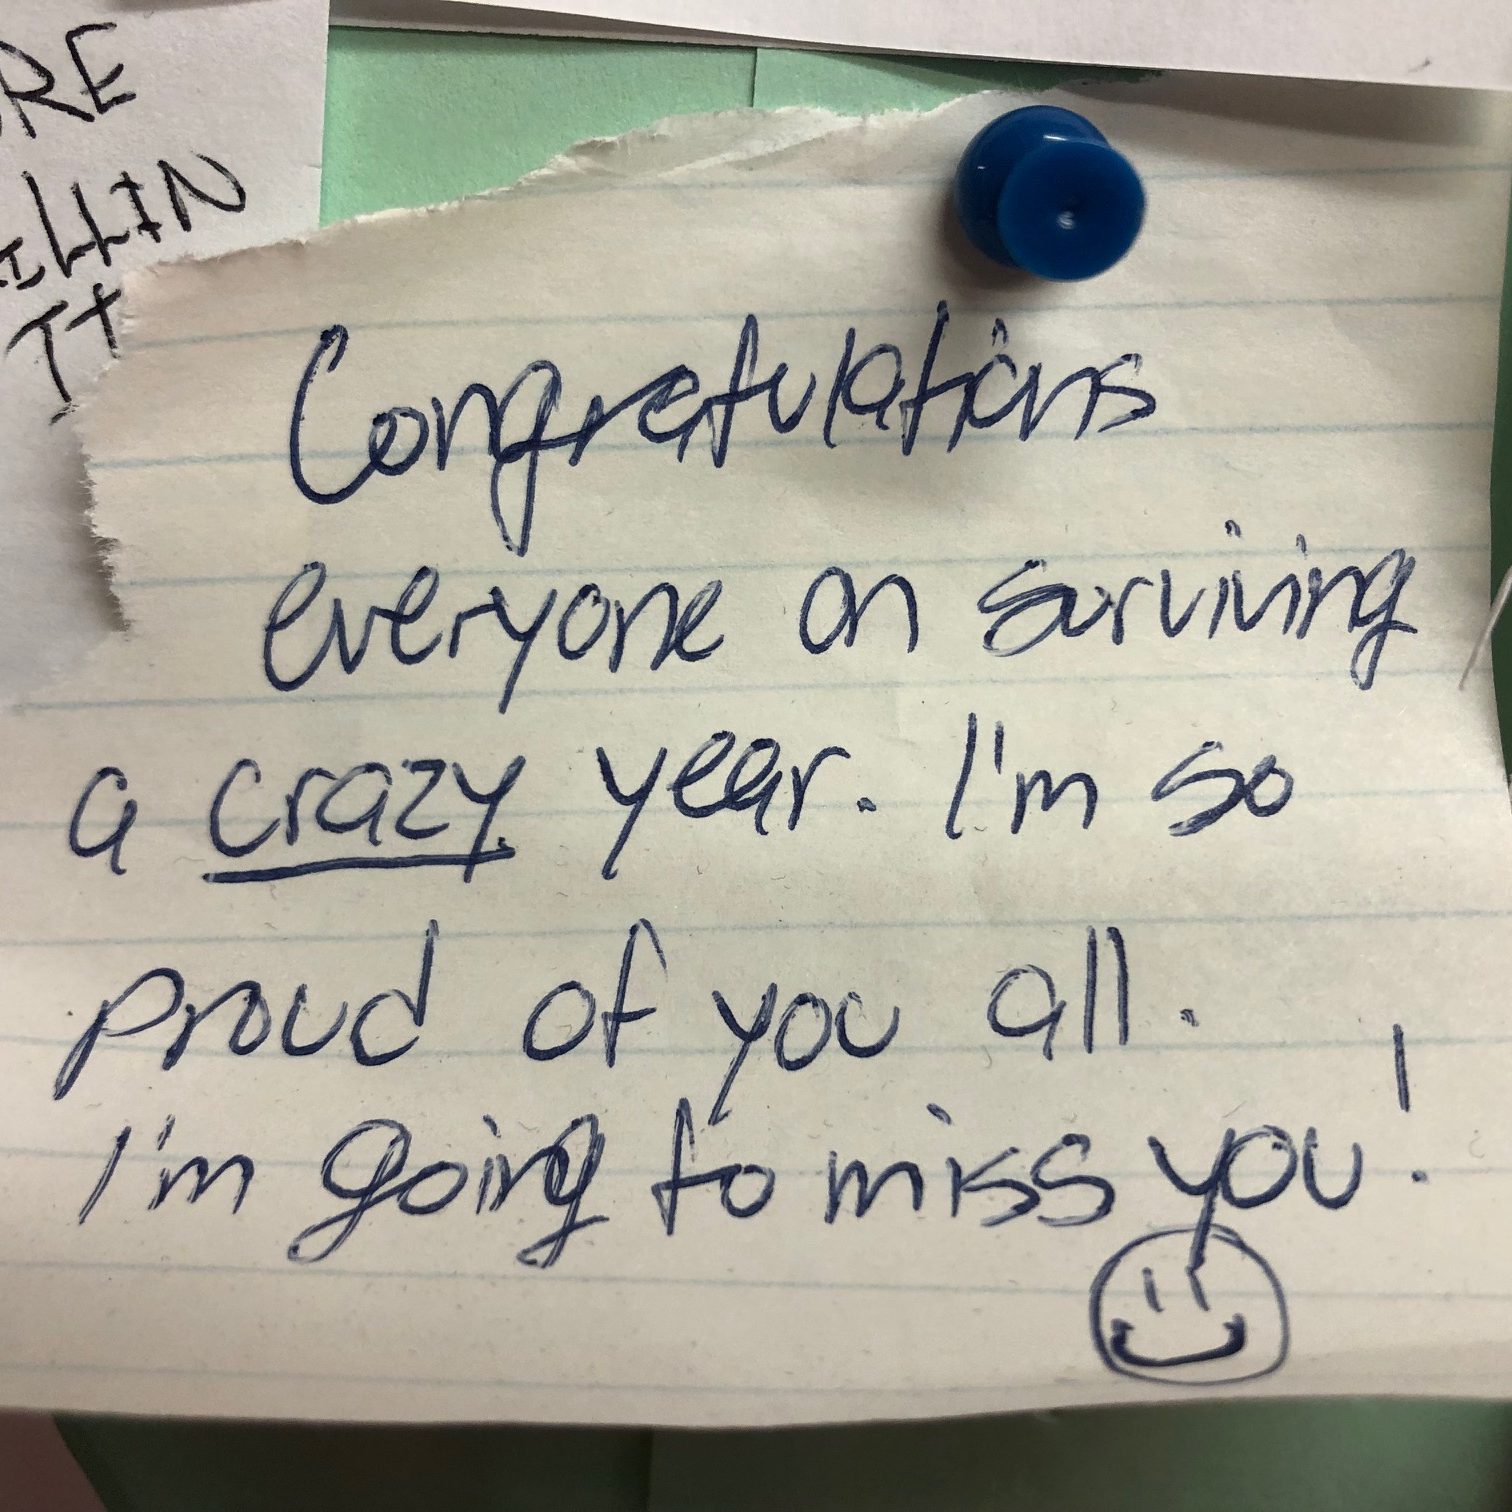 RE
ILLIN
IT
Congratulations
everyone on surviving
a crazy year. I'm so
proud of you all.
I'm going to miss you!